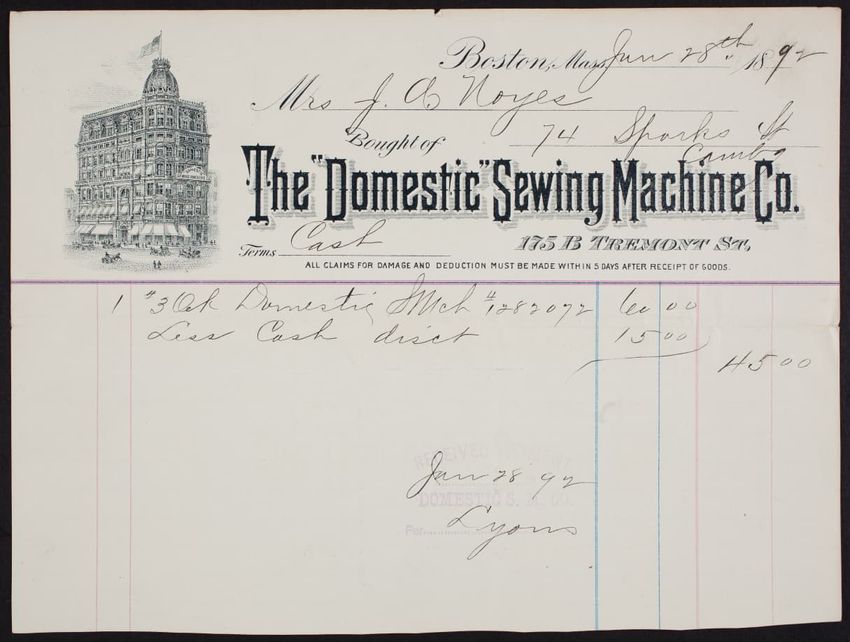 Boston, Mass Jan 28th 1892
Mrs J. A. Noyes
Bought of 74 Sparks St
Camb
The "Domestic" Sewing Machine Co.
Terms Cash 175 B TREMONT ST.
ALL CLAIMS FOR DAMAGE AND DEDUCTION MUST BE MADE WITHIN 5 DAYS AFTER RECEIPT OF GOODS.
1 #3 Oak Domestic S Mch #1282072 60 00
Less Cash disct 15 00
45 00
RECEIVED PAYMENT
Jan 28 92
DOMESTIC S. M. CO.
Lyons
Per